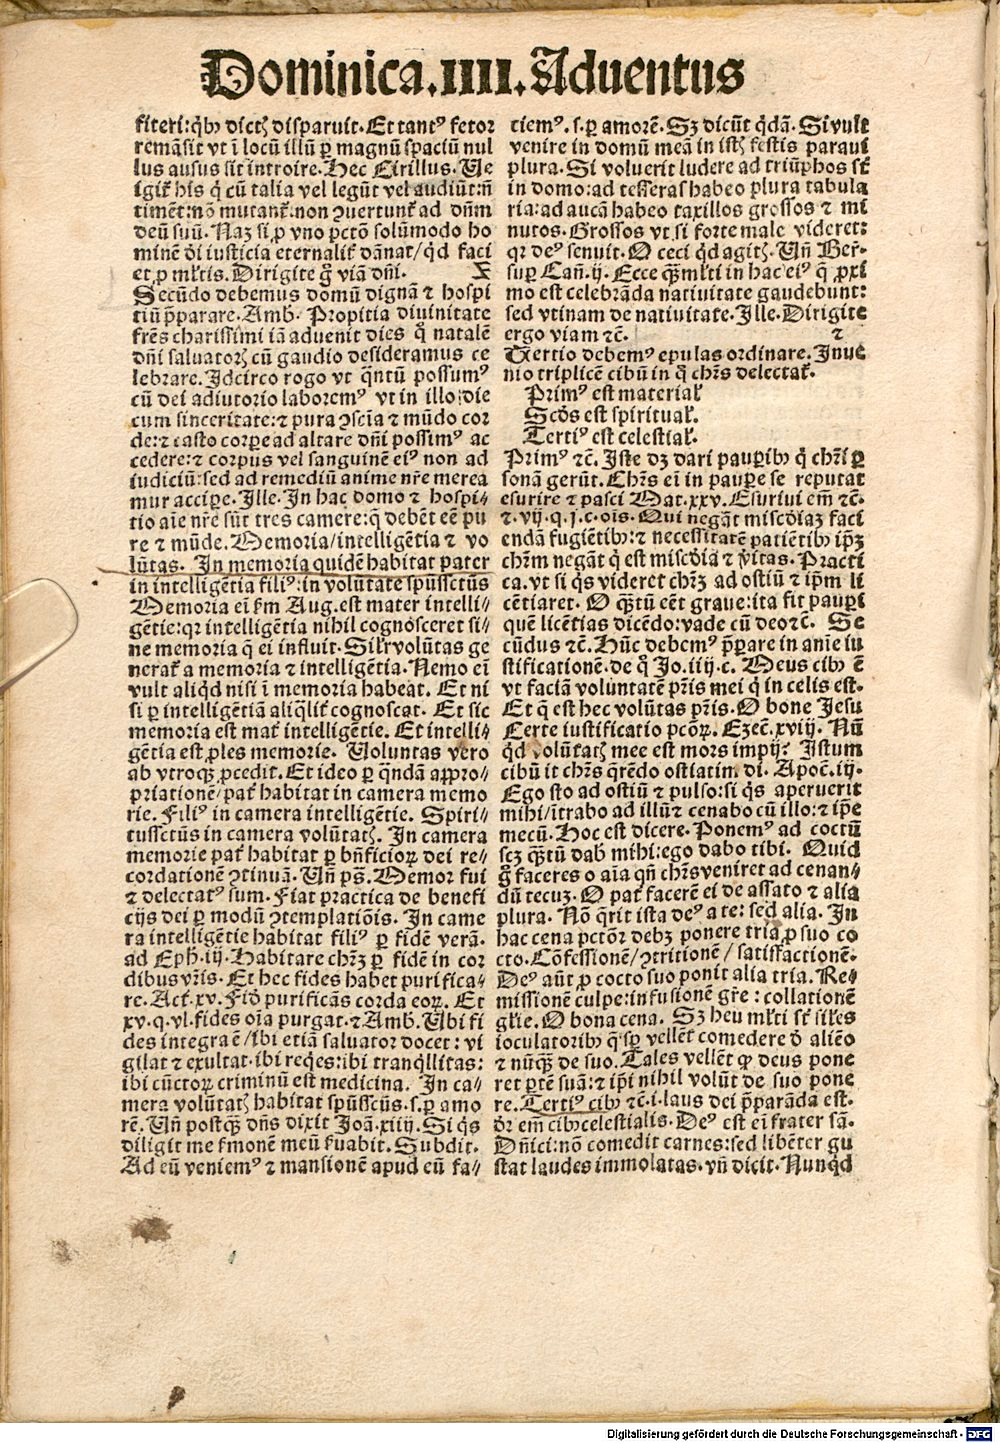 Dominica.IIII.Aduentus
fiteri:qb⁹ dictꝭ disparuit. Et tant⁹ fetor
remāsit vt ī locū illū ꝑ magnū spaciū nul
lus ausus sit introire. Hec Cirillus. Ue
igit̃ his q̇ cū talia vel legūt vel audiūt:n̄
timēt:nō mutant̃.non ꝯuertunt̃ ad dn̄m
deū suū. Naꝫ si ꝓ vno pctō solūmodo ho
minē d̓i iusticia eternalit̓ dānat/qd̓ faci
et ꝓ ml̓tis. Dirigite g̊ viā dn̄i. X
Secūdo debemus domū dignā ⁊ hospi
tiū p̄parare. Amb. Propitia diuinitate
fr̄es charissimi iā aduenit dies q̄ natalē
dn̄i saluatorꝭ cū gaudio desideramus ce
lebrare. Idcirco rogo vt q̄ntū possum⁹
cū dei adiutorio laborem⁹ vt in illo die
cum sinceritate:⁊ pura ꝯscīa ⁊ mūdo cor
de:⁊ casto corꝑe ad altare dn̄i possim⁹ ac
cedere:⁊ corpus vel sanguinē ei⁹ non ad
iudiciū:sed ad remediū anime nr̄e merea
mur acciꝑe. Ille. In hac domo ⁊ hospi⸗
tio aīe nr̄e sūt tres camere:q̄ debēt eē pu
re ⁊ mūde. Memoria/intelligētia ⁊ vo
lūtas. In memoria quidē habitat pater
in intelligētia fili⁹:in volūtate spūssctūs
Memoria eī ẜm Aug.est mater intelli⸗
gētie:qꝛ intelligētia nihil cognosceret si⸗
ne memoria q̄ ei influit. Silr̓ volūtas ge
nerat̃ a memoria ⁊ intelligētia. Nemo eī
vult aliqd̓ nisi ī memoria habeat. Et ni
si ꝑ intelligētiā aliq̄lit̓ cognoscat. Et sic
memoria est mat̓ intelligētie. Et intelli⸗
gētia est ꝓles memorie. Uoluntas vero
ab vtroqꝫ ꝓcedit. Et ideo ꝑ q̄ndā aꝓpro⸗
priationē/pat̓ habitat in camera memo
rie. Fili⁹ in camera intelligētie. Spiri⸗
tussctūs in camera volūtatꝭ. In camera
memorie pat̓ habitat ꝑ bn̄ficioꝝ dei re⸗
cordationē ꝯtinuā. Un̄ ps̄. Memor fui
⁊ delectat⁹ sum. Fiat practica de benefi
cijs dei ꝑ modū ꝯtemplatiōis. In came
ra intelligētie habitat fili⁹ ꝑ fidē verā.
ad Eph.iij. Habitare chr̄ꝫ ꝑ fidē in cor
dibus vr̄is. Et hec fides habet purifica⸗
re. Act.xv. Fid̓ purificās corda eoꝝ. Et
xv.q.vl.fides oīa purgat.⁊ Amb. Ubi fi
des integra ē/ibi etiā saluator docet: vi
gilat ⁊ exultat.ibi reqͥes:ibi tranqͥllitas:
ibi cūctoꝝ criminū est medicina. In ca⸗
mera volūtatꝭ habitat spūsscūs.s.ꝑ amo
rē. Un̄ postqͣꝫ dn̄s dixit Joā.xiiij. Si qͥs
diligit me ẜmonē meū ẜuabit. Subdit.
Ad eū veniem⁹ ⁊ mansionē apud eū fa⸗
ciem⁹.s.ꝑ amorē. Sꝫ dicūt qͥdā. Si vult
venire in domū meā in istꝭ festis paraui
plura. Si voluerit ludere ad triūphos st̄
in domo:ad tesseras habeo plura tabula
ria:ad aucā habeo taxillos grossos ⁊ mi
nutos. Grossos vt si forte male videret:
qꝛ de⁹ senuit. O ceci qd̓ agitꝭ. Un̄ Ber̄.
suꝑ Can̄.ij. Ecce qͣꝫ ml̓ti in hac ei⁹ q̄ ꝓxi
mo est celebrāda natiuitate gaudebunt:
sed vtinam de natiuitate. Ille. Dirigite
ergo viam ⁊c. Z
Tertio debem⁹ epulas ordinare. Inue
nio triplicē cibū in q̊ chr̄s delectat̃.
Prim⁹ est material̓.
Scd̓s est spiritual̓.
Terti⁹ est celestial̓.
Prim⁹ ⁊c. Iste dꝫ dari pauꝑibꝰ q̇ chr̄i ꝑ
sonā gerūt. Chr̄s eī in pauꝑe se reputat
esurire ⁊ pasci Mat.xxv. Esuriui em̄ ⁊c.
⁊.vij.q.j.c.oīs. Qui negāt miscd̓iaꝫ faci
endā fugiētibꝰ:⁊ necessitatē patiētibꝰ ip̄ꝫ
chr̄m negāt q̇ est miscd̓ia ⁊ v̓itas. Practi
ca.vt si qͥs videret chr̄ꝫ ad ostiū ⁊ ip̄m li
cētiaret. O qͣꝫtū eēt graue:ita fit pauꝑi
quē licētias dicēdo:vade cū deo ⁊c. Se
cūdus ⁊c. Hūc debem⁹ p̄pare in anīe iu
stificationē.de q̊ Jo.iiij.c. Meus cibꝰ ē
vt faciā voluntatē pr̄is mei q̇ in celis est.
Et q̄ est hec volūtas pr̄is. O bone Jesu
Certe iustificatio pcōꝝ. Ezec̄.xviij. Nū
qd̓ volūtatꝭ mee est mors impij? Istum
cibū it chr̄s q̄rēdo ostiatim.di. Apoc̄.iij.
Ego sto ad ostiū ⁊ pulso:si qͥs aperuerit
mihi/ītrabo ad illū ⁊ cenabo cū illo:⁊ ip̄e
mecū. Hoc est dicere. Ponem⁹ ad coctū
scꝫ qͣꝫtū dab̓ mihi:ego dabo tibi. Quid
g̊ faceres o aīa qn̄ chr̄s veniret ad cenan⸗
dū tecuꝫ. O pat̓ facerē ei de assato ⁊ alia
plura. Nō q̄rit ista de⁹ a te: sed alia. In
hac cena pctōr debꝫ ponere tria ꝓ suo co
cto. Cōfessionē/ꝯtritionē/satisfactionē.
De⁹ aūt ꝓ cocto suo ponit alia tria. Re⸗
missionē culpe:infusionē gr̄e: collationē
gl̓ie. O bona cena. Sꝫ heu ml̓ti st̄ sil̓es
ioculatoribꝰ q̇ sꝑ vellēt comedere d̓ aliēo
⁊ nūqͣꝫ de suo. Tales vellēt ꝙ deus pone
ret ꝑtē suā:⁊ ip̄i nihil volūt de suo pone
re. Terti⁹ cibꝰ ⁊c.i.laus dei p̄parāda est.
d̓r em̄ cibꝰ celestialis. De⁹ est eī frater sā.
Dn̄ici:nō comedit carnes:sed libēter gu
stat laudes immolatas.vn̄ dicit. Nunqd̓
Digitalisierung gefördert durch die Deutsche Forschungsgemeinschaft - DFG